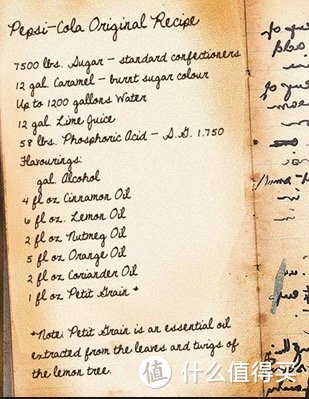 Pepsi-Cola Original Recipe
7500 lbs. Sugar – standard confectioners
12 gal. Caramel – burnt sugar colour
Up to 1200 gallons Water
12 gal. Lime Juice
58 lbs. Phosphoric Acid – S.G. 1.750
Flavourings:
gal. Alcohol
4 fl oz Cinnamon Oil
6 fl oz. Lemon Oil
2 fl oz Nutmeg Oil
5 fl oz Orange Oil
2 fl oz Coriander Oil
1 fl oz Petit Grain *
*Note: Petit Grain is an essential oil
extracted from the leaves and twigs of
the lemon tree.
值 什么值得买